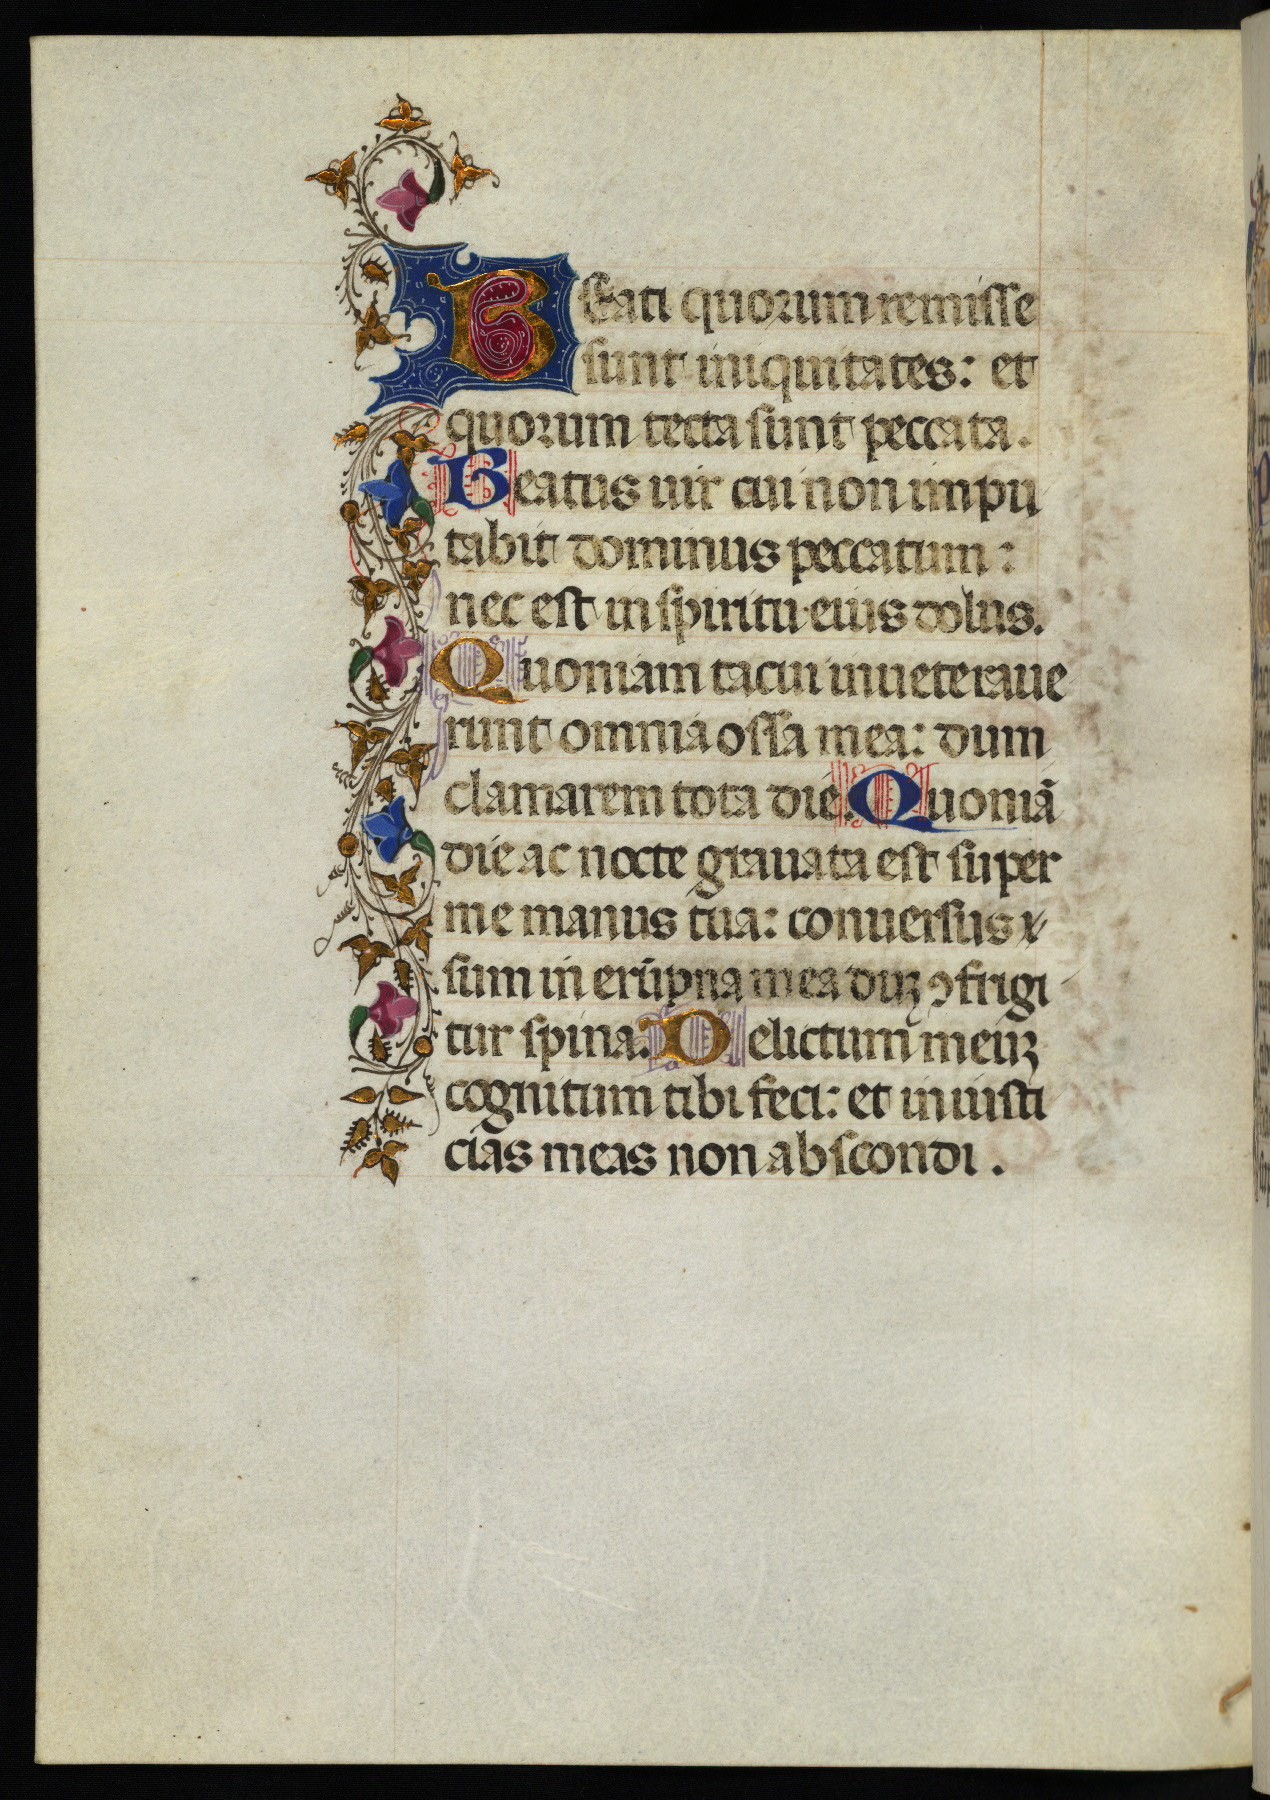 BEati quorum remisse
sunt iniquitates: et
quorum tecta sunt peccata.
Beatus uir cui non impu
tabit dominus peccatum:
nec est in spiritu eius dolus.
Quoniam tacui inueteraue
runt omnia ossa mea: dum
clamarem tota die. Quoniā
die ac nocte grauata est super
me manus tua: conuersus
sum in erūpna mea duʒ ꝯfrigi
tur spina. Delictum meuʒ
cognitum tibi feci: et iniusti
cias meas non abscondi.